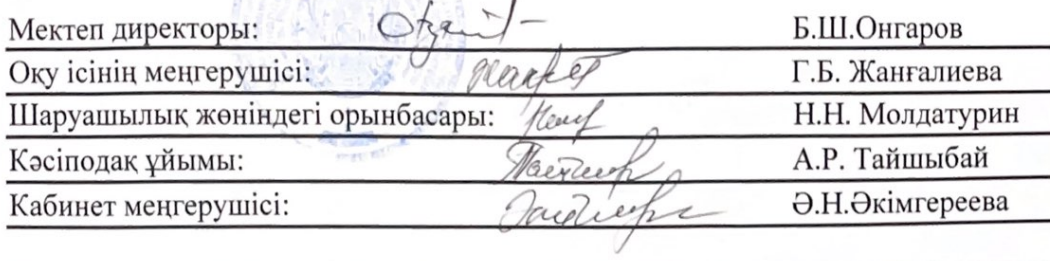 Мектеп директоры: Б.Ш.Онгаров
Оқу ісінің меңгерушісі: Г.Б. Жанғалиева
Шаруашылық жөніндегі орынбасары: Н.Н. Молдатурин
Кәсіподақ ұйымы: А.Р. Тайшыбай
Кабинет меңгерушісі: Ә.Н.Әкімгереева